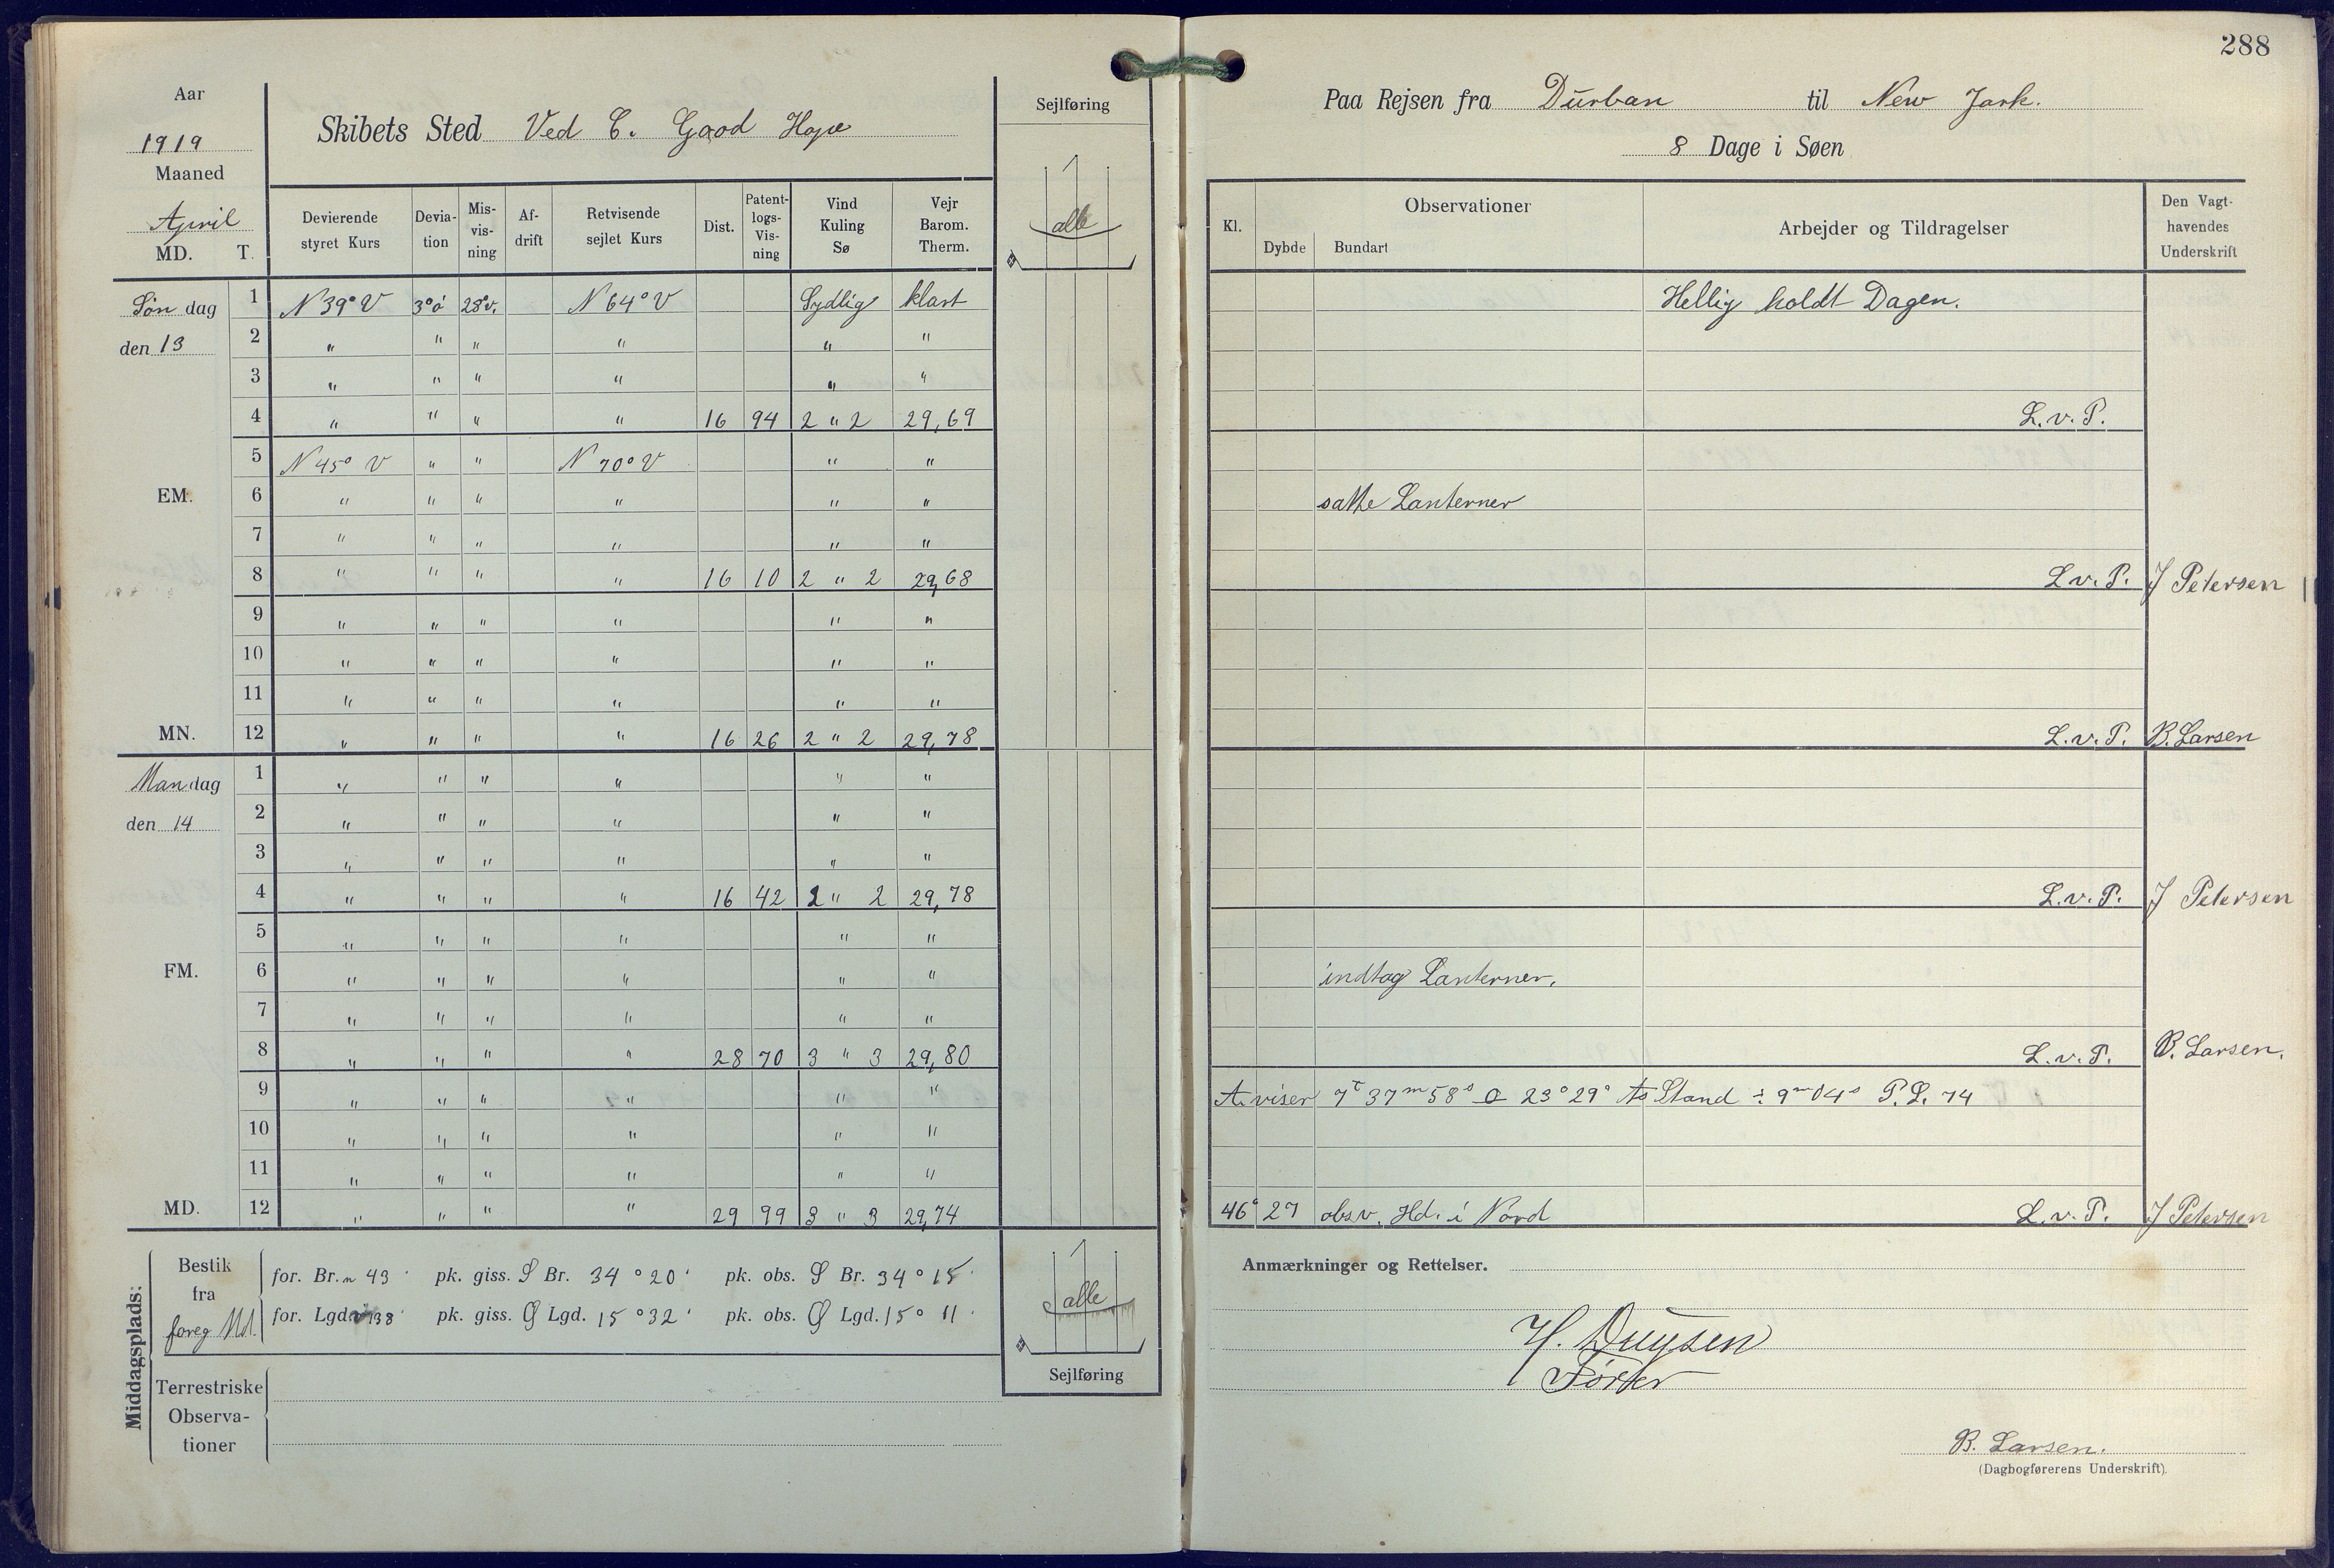 288
Aar
1919
Maaned
April
MD. T.
Skibets Sted Ved C. Good Hope
Sejlføring
alle
Paa Rejsen fra Durban til New Jork.
8 Dage i Søen
Devierende styret Kurs
Deviation
Misvisning
Afdrift
Retvisende sejlet Kurs
Dist.
Patentlogs-Visning
Vind Kuling Sø
Vejr Barom. Therm.
Kl.
Observationer
Dybde Bundart
Arbejder og Tildragelser
Den Vagthavendes Underskrift
Søn dag 1 N 39° V 3°ö 28°v. N 64° V Sydlig klart Hellig holdt Dagen.
den 13 2 " " " " " "
3 " " " " " "
4 " " " " 16 94 2 " 2 29,69 L.v.P.
5 N 45° V " " N 70° V " "
EM. 6 " " " " " " satte Lanterner
7 " " " " " "
8 " " " " 16 10 2 " 2 29,68 L.v.P. J Petersen
9 " " " " " "
10 " " " " " "
11 " " " " " "
MN. 12 " " " " 16 26 2 " 2 29,78 L.v.P. B. Larsen
Man dag 1 " " " " " "
den 14 2 " " " " " "
3 " " " " " "
4 " " " " 16 42 2 " 2 29,78 L.v.P. J Petersen
5 " " " " " "
FM. 6 " " " " " " indtog Lanterner.
7 " " " " " "
8 " " " " 28 70 3 " 3 29,80 L.v.P. B. Larsen.
9 " " " " " " A. viser 7t 37m 58s 23° 29° As Stand ÷ 9m 04s P.L. 74
10 " " " " " "
11 " " " " " "
MD. 12 " " " " 29 99 3 " 3 29,74 46° 27 obsv. Hd. i Nord L.v.P. J Petersen
Middagsplads:
Bestik fra foreg Md.
for. Br. n 43' pk. giss. S Br. 34° 20' pk. obs. S Br. 34° 15'
for. Lgd. 138' pk. giss. Ø Lgd. 15° 32' pk. obs. Ø Lgd. 15° 11'
Terrestriske Observationer
alle
Sejlføring
Anmærkninger og Rettelser.
H. Duysen
Fører
B. Larsen.
(Dagbogførerens Underskrift).